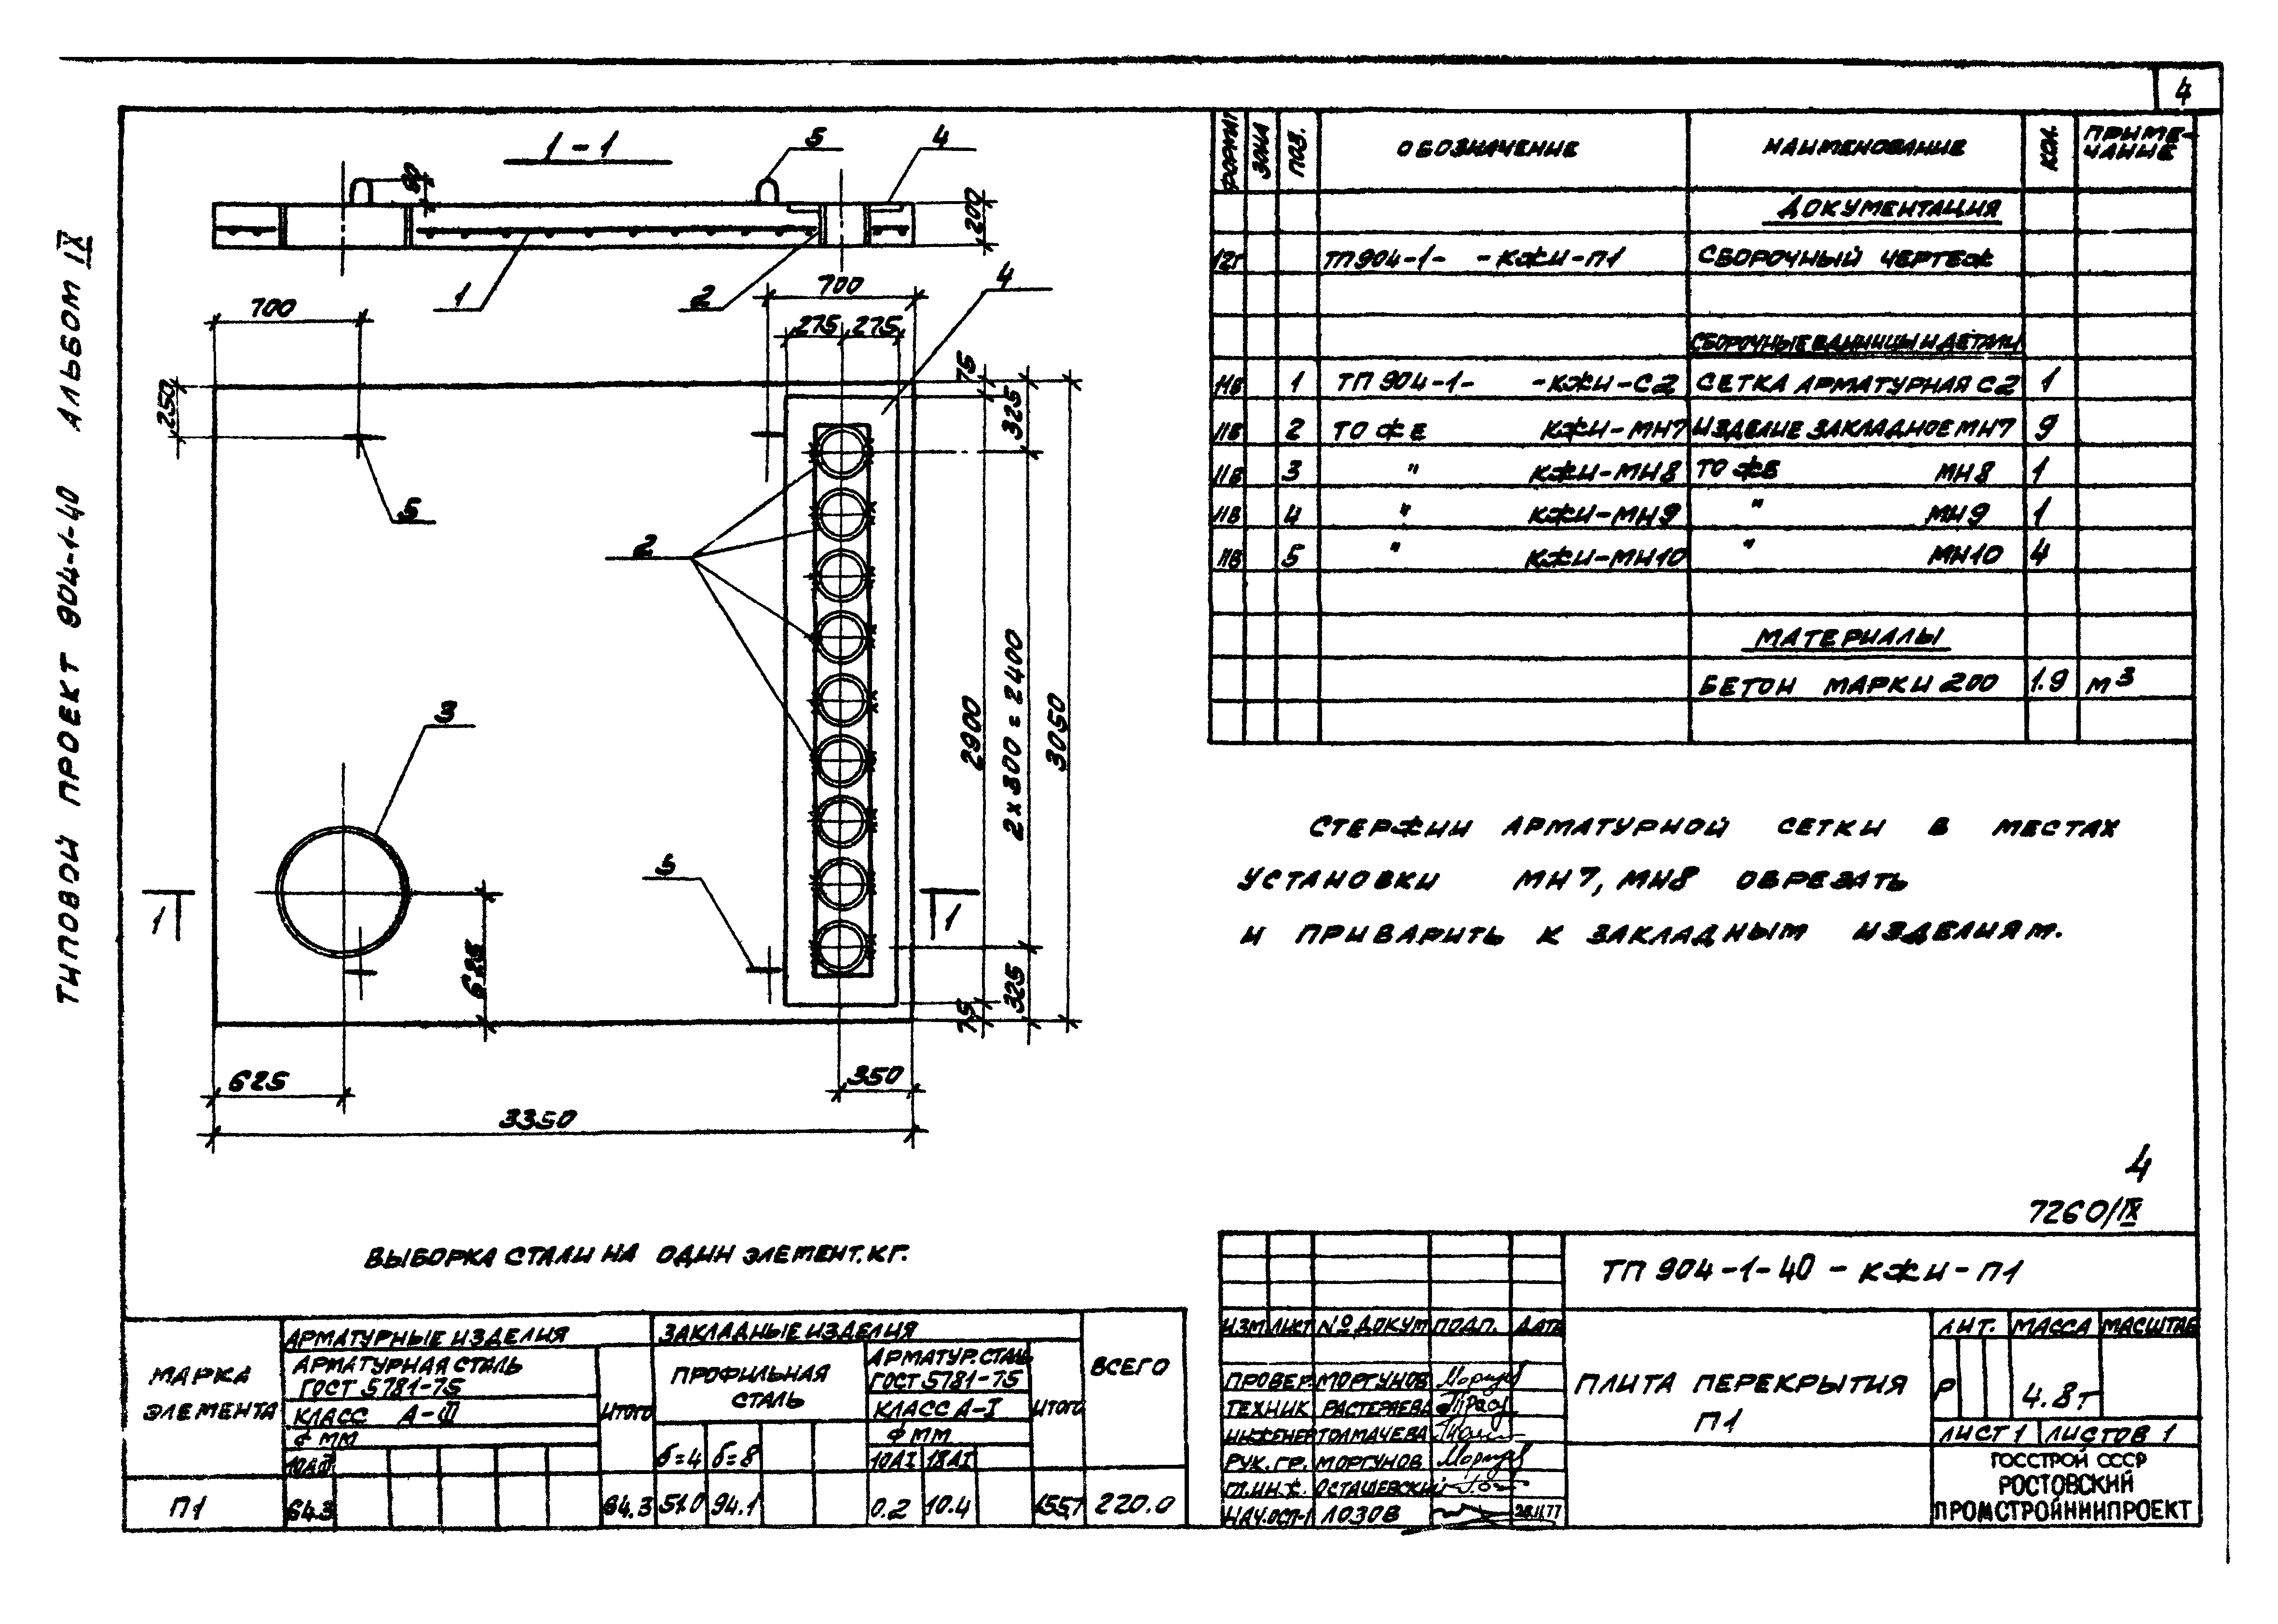 4
ТИПОВОЙ ПРОЕКТ 904-1-40 АЛЬБОМ IX
1-1
5
4
90
200
1
2
700
700
275 275
4
75
325
250
5
2
2900
2×300=2400
3050
3
5
1
1
625
325
75
625
350
3350
ФОРМАТ ЗОНА ПОЗ. ОБОЗНАЧЕНИЕ НАИМЕНОВАНИЕ КОЛ. ПРИМЕ-
ЧАНИЕ
ДОКУМЕНТАЦИЯ
12г ТП904-1- -КЖИ-П1 СБОРОЧНЫЙ ЧЕРТЕЖ
СБОРОЧНЫЕ ЕДИНИЦЫ И ДЕТАЛИ
11В 1 ТП 904-1- -КЖИ-С2 СЕТКА АРМАТУРНАЯ С2 1
11В 2 ТО ЖЕ КЖИ-МН7 ИЗДЕЛИЕ ЗАКЛАДНОЕ МН7 9
11В 3 " КЖИ-МН8 ТО ЖЕ МН8 1
11В 4 " КЖИ-МН9 " МН9 1
11В 5 " КЖИ-МН10 " МН10 4
МАТЕРИАЛЫ
БЕТОН МАРКИ 200 1.9 м3
СТЕРЖНИ АРМАТУРНОЙ СЕТКИ В МЕСТАХ
УСТАНОВКИ МН7, МН8 ОБРЕЗАТЬ
И ПРИВАРИТЬ К ЗАКЛАДНЫМ ИЗДЕЛИЯМ.
4
7260/IX
ВЫБОРКА СТАЛИ НА ОДИН ЭЛЕМЕНТ. КГ.
МАРКА
ЭЛЕМЕНТА
АРМАТУРНЫЕ ИЗДЕЛИЯ
АРМАТУРНАЯ СТАЛЬ
ГОСТ 5781-75
КЛАСС А-III
Ф ММ
10АIII
ИТОГО
ЗАКЛАДНЫЕ ИЗДЕЛИЯ
ПРОФИЛЬНАЯ
СТАЛЬ
б=4 б=8
АРМАТУР. СТАЛЬ
ГОСТ 5781-75
КЛАСС А-I
Ф ММ
10АI 18АI
ИТОГО
ВСЕГО
П1 64.3 64.3 51.0 94.1 0.2 10.4 155,7 220.0
ТП 904-1-40-КЖИ-П1
ИЗМ ЛИСТ № ДОКУМ ПОДП. ДАТА
ПРОВЕР. МОРГУНОВ
ТЕХНИК РАСТЕРЯЕВА
ИНЖЕНЕР ТОЛМАЧЕВА
РУК. ГР. МОРГУНОВ
ГЛ.ИН.Ж. ОСТАШЕВСКИЙ
НАЧ.ОСП-1 ЛОЗОВ
ПЛИТА ПЕРЕКРЫТИЯ
П1
ЛИТ. МАССА МАСШТАБ
Р 4.8т
ЛИСТ 1 ЛИСТОВ 1
ГОССТРОЙ СССР
РОСТОВСКИЙ
ПРОМСТРОЙНИИПРОЕКТ